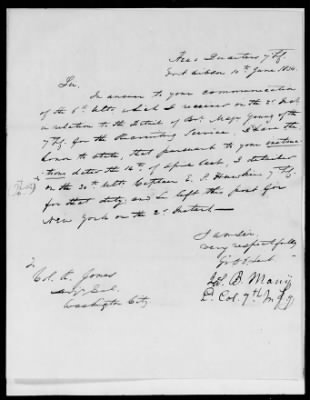 Head Quarters 7 Inf.
Fort Gibson 10th June 1836.
Sir,
In answer to your communication
of the 6th Ulto which I received on the 2d Inst
in relation to the detail of Bt. Major Young of the
7 Inf. for the Recruiting Service, I have the
honor to state, that pursuant to your instruc-
tions dated the 14th of April last, I detailed
on the 30th Ulto Captain E. S. Hawkins 7 Inf.
for that duty, and he left this post for
New York on the 2d Instant
I am Sir,
very respectfully
Yr Ob Sert
B. Many
Lt. Col. 7th Inf
To
Col. R. Jones
Adjt Genl.
Washington City